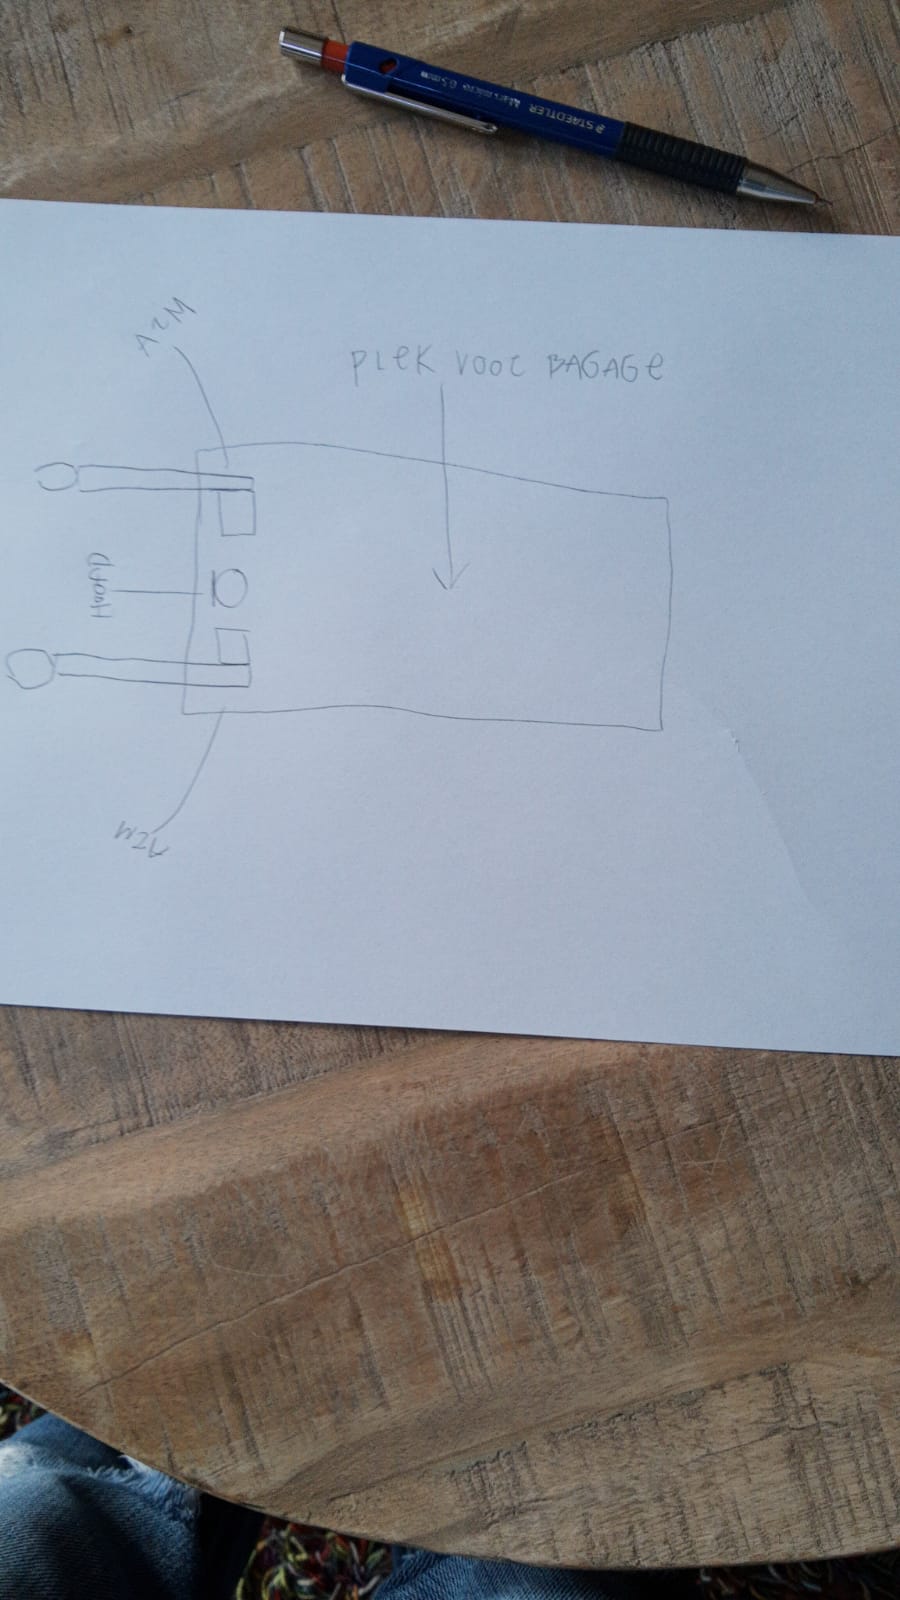 STAEDTLER Mars micro 0.5mm
ARM
PLEK VOOR BAGAGE
Hoofd
ARM